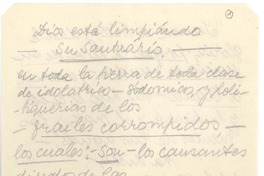 Dios está limpiándo
— Su Santuario —
en toda la tierra de toda clase
de idolatrica — Sodomicas, y
liquerias de los
— frailes corrompidos —
los cuales: — Son — los causantes
directos de las